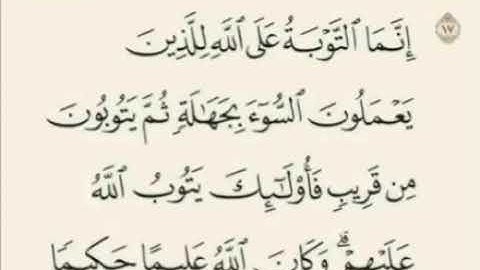 إِنَّمَا ٱلتَّوْبَةُ عَلَى ٱللَّهِ لِلَّذِينَ ١٧
يَعْمَلُونَ ٱلسُّوٓءَ بِجَهَـٰلَةٍ ثُمَّ يَتُوبُونَ
مِن قَرِيبٍ فَأُو۟لَـٰٓئِكَ يَتُوبُ ٱللَّهُ
عَلَيْهِمْ ۗ وَكَانَ ٱللَّهُ عَلِيمًا حَكِيمًا